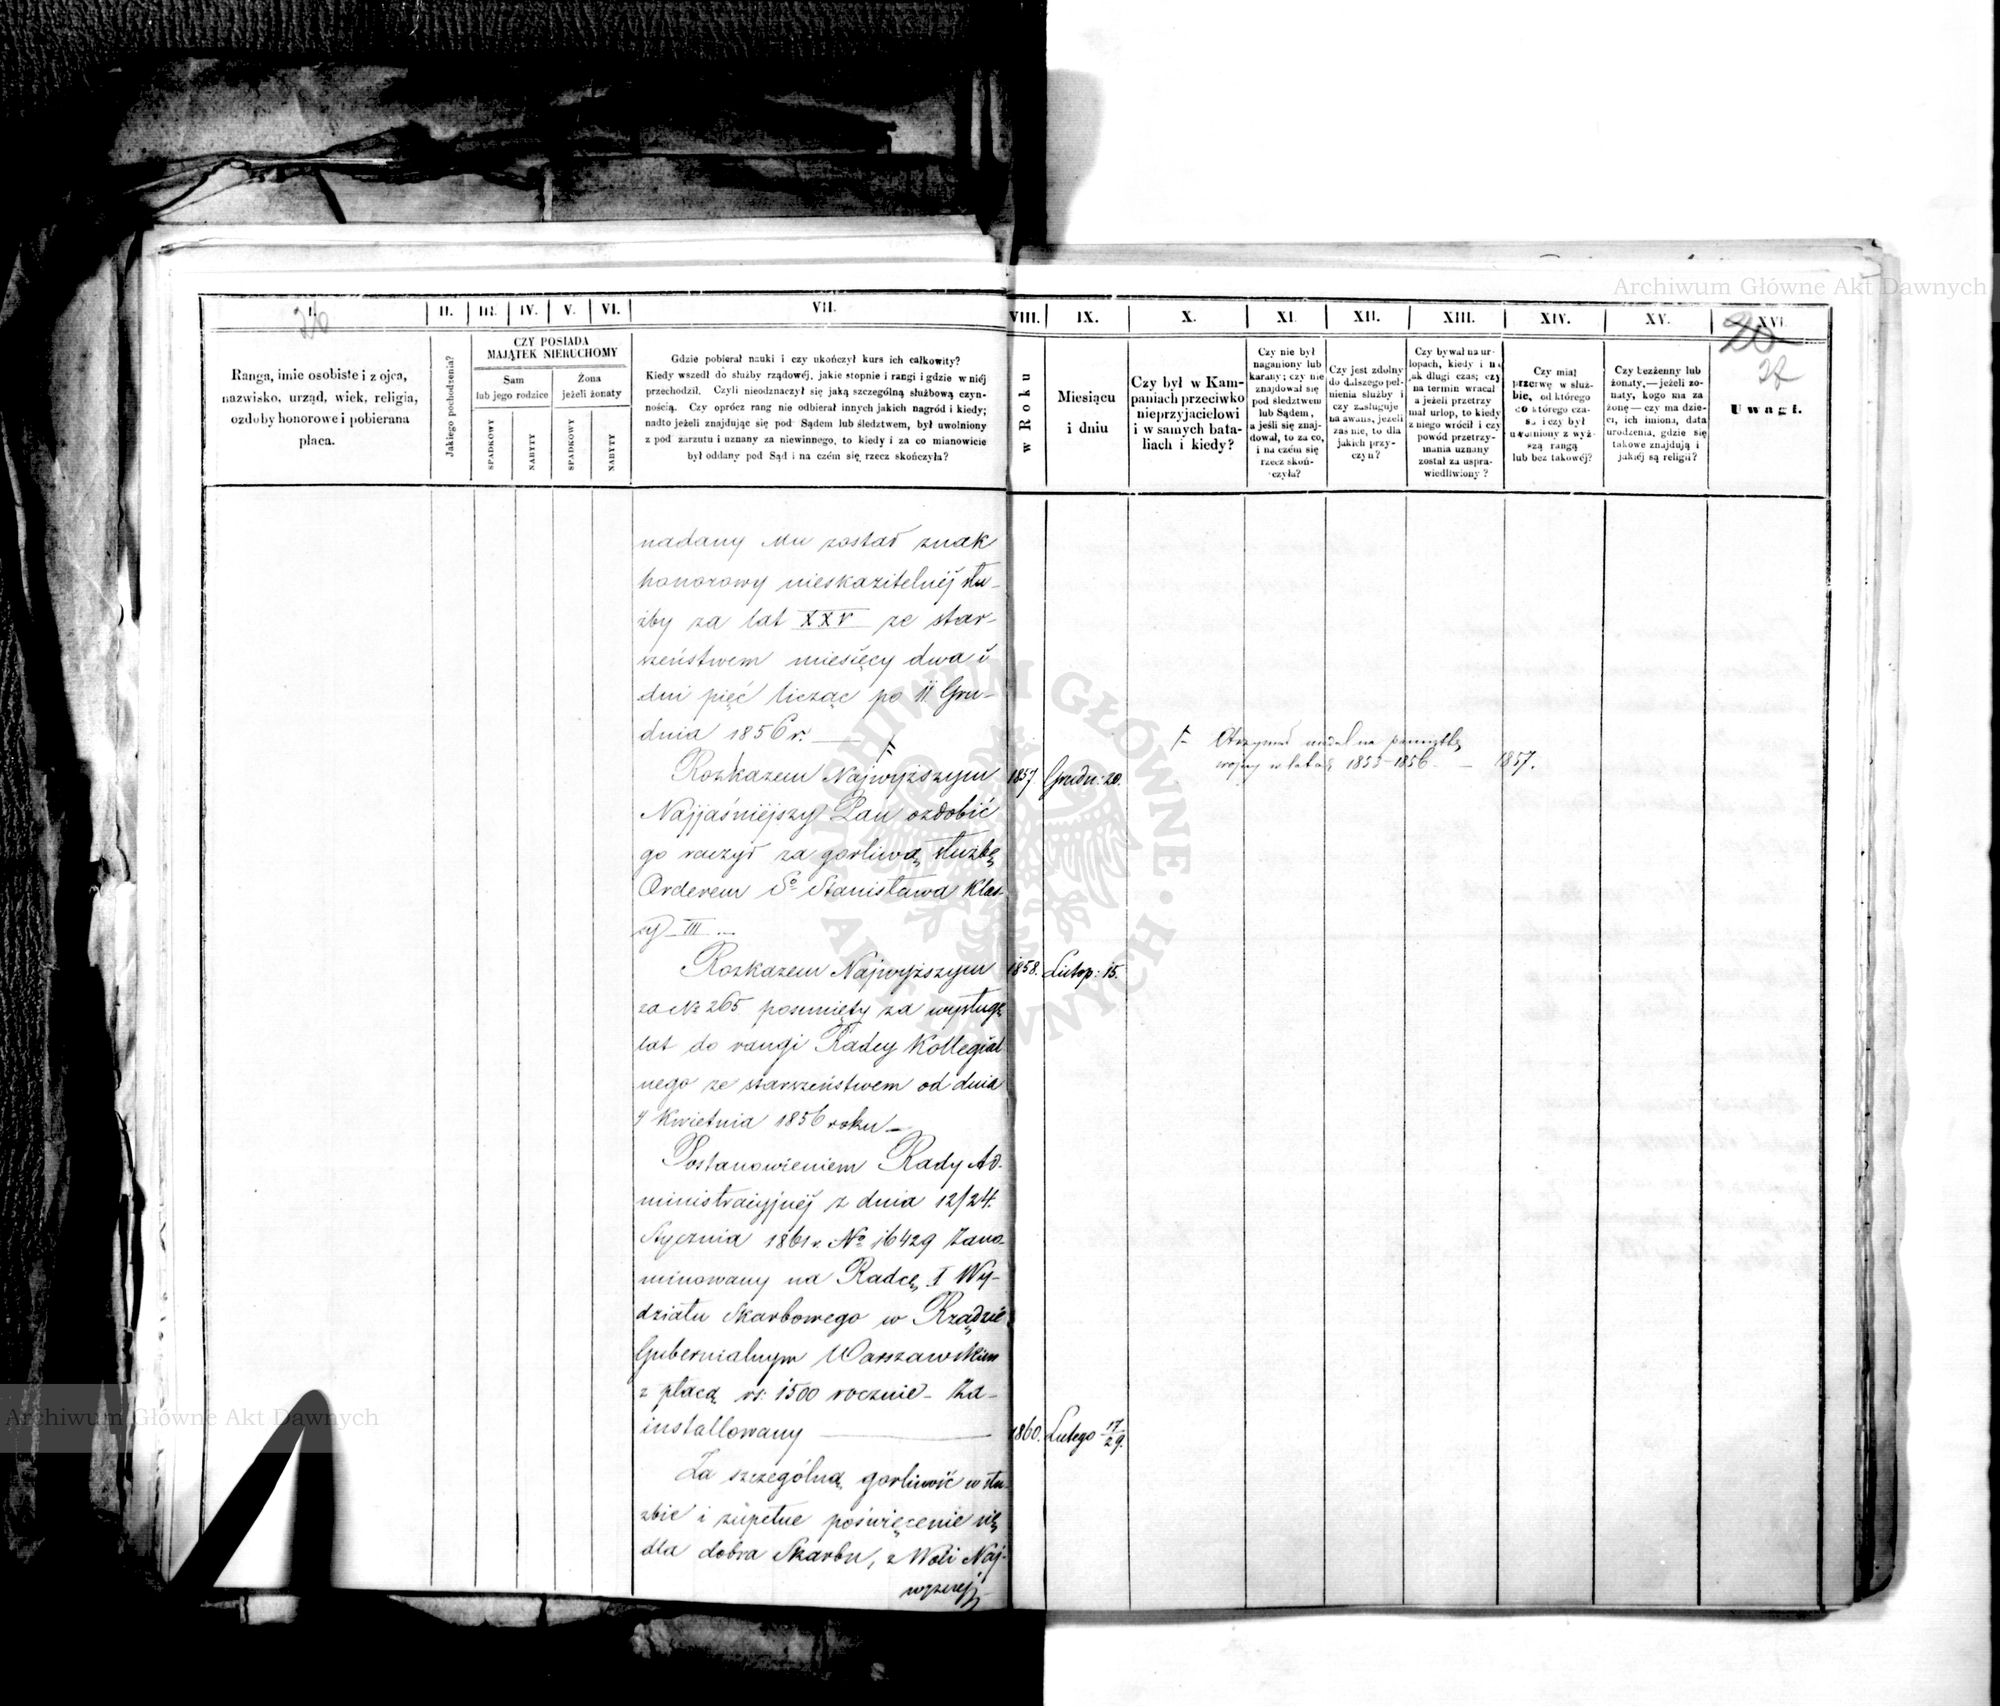 Archiwum Główne Akt Dawnych
26
20
27
I.
II.
III.
IV.
V.
VI.
VII.
VIII.
IX.
X.
XI.
XII.
XIII.
XIV.
XV.
XVI.
Ranga, imie osobiste i z ojca,
nazwisko, urząd, wiek, religia,
ozdoby honorowe i pobierana
płaca.
Jakiego pochodzenia?
CZY POSIADA
MAJĄTEK NIERUCHOMY
Sam
lub jego rodzice
Żona
jeżeli żonaty
SPADKOWY
NABYTY
SPADKOWY
NABYTY
Gdzie pobierał nauki i czy ukończył kurs ich całkowity?
Kiedy wszedł do służby rządowéj, jakie stopnie i rangi i gdzie w niéj
przechodził. Czyli nieodznaczył się jaką szczególną służbową czyn-
nością. Czy oprócz rang nie odbierał innych jakich nagród i kiedy;
nadto jeżeli znajdując się pod Sądem lub śledztwem, był uwolniony
z pod zarzutu i uznany za niewinnego, to kiedy i za co mianowicie
był oddany pod Sąd i na czém się rzecz skończyła?
w Roku
Miesiącu
i dniu
Czy był w Kam-
paniach przeciwko
nieprzyjacielowi
i w samych bata-
liach i kiedy?
Czy nie był
naganiony lub
karany; czy nie
znajdował się
pod śledztwem
lub Sądem,
a jeśli się znaj-
dował, to za co,
i na czém się
rzecz skoń-
czyła?
Czy jest zdolny
do dalszego peł-
nienia służby i
czy zasługuje
na awans, jeżeli
zaś nie, to dla
jakich przy-
czyn?
Czy bywał na ur-
lopach, kiedy i na
jak długi czas; czy
na termin wracał
a jeżeli przetrzy
mał urlop, to kiedy
z niego wrócił i czy
powód przetrzy-
mania uznany
został za uspra-
wiedliwiony?
Czy miał
przerwę w służ-
bie, od którego
do którego cza-
su i czy był
uwolniony z wyż-
szą rangą
lub bez takowéj?
Czy bezżenny lub
żonaty,—jeżeli żo-
naty, kogo ma za
żonę—czy ma dzie-
ci, ich imiona, data
urodzenia, gdzie się
takowe znajdują i
jakiéj są religii?
Uwagi.
nadany Mu został znak
honorowy nieskazitelnéj słu-
żby za lat XXV ze star-
szeństwem miesięcy dwa i
dni pięć licząc po 11 Gru-
dnia 1856 r.
Rozkazem Najwyższym 1857 Grudn: 20.
Najjaśniejszy Pan ozdobić
go raczył za gorliwą służbę
Orderem So Stanisława Klas-
sy III
Rozkazem Najwyższym 1858. Listop: 15.
za No 265 posunięty za wysługę
lat do rangi Radcy Kollegial
nego ze starszeństwem od dnia
4 Kwietnia 1856 roku
Postanowieniem Rady Ad-
ministracyjnéj z dnia 12/24.
Stycznia 1861 r. No 16429 Zano-
minowany na Radcę I Wy-
działu Skarbowego w Rządzie
Gubernialnym Warszawskim
z płacą rs: 1500 rocznie - Za-
installowany 1860. Lutego 17/29.
Za szczególną gorliwość w słu-
żbie i zupełne poświęcenie się
dla dobra Skarbu, z Woli Naj-
wyższej
Otrzymał medal na pamiątkę
wojny w latach 1853-1856. - 1857.
ARCHIWUM GŁÓWNE AKT DAWNYCH
Archiwum Główne Akt Dawnych